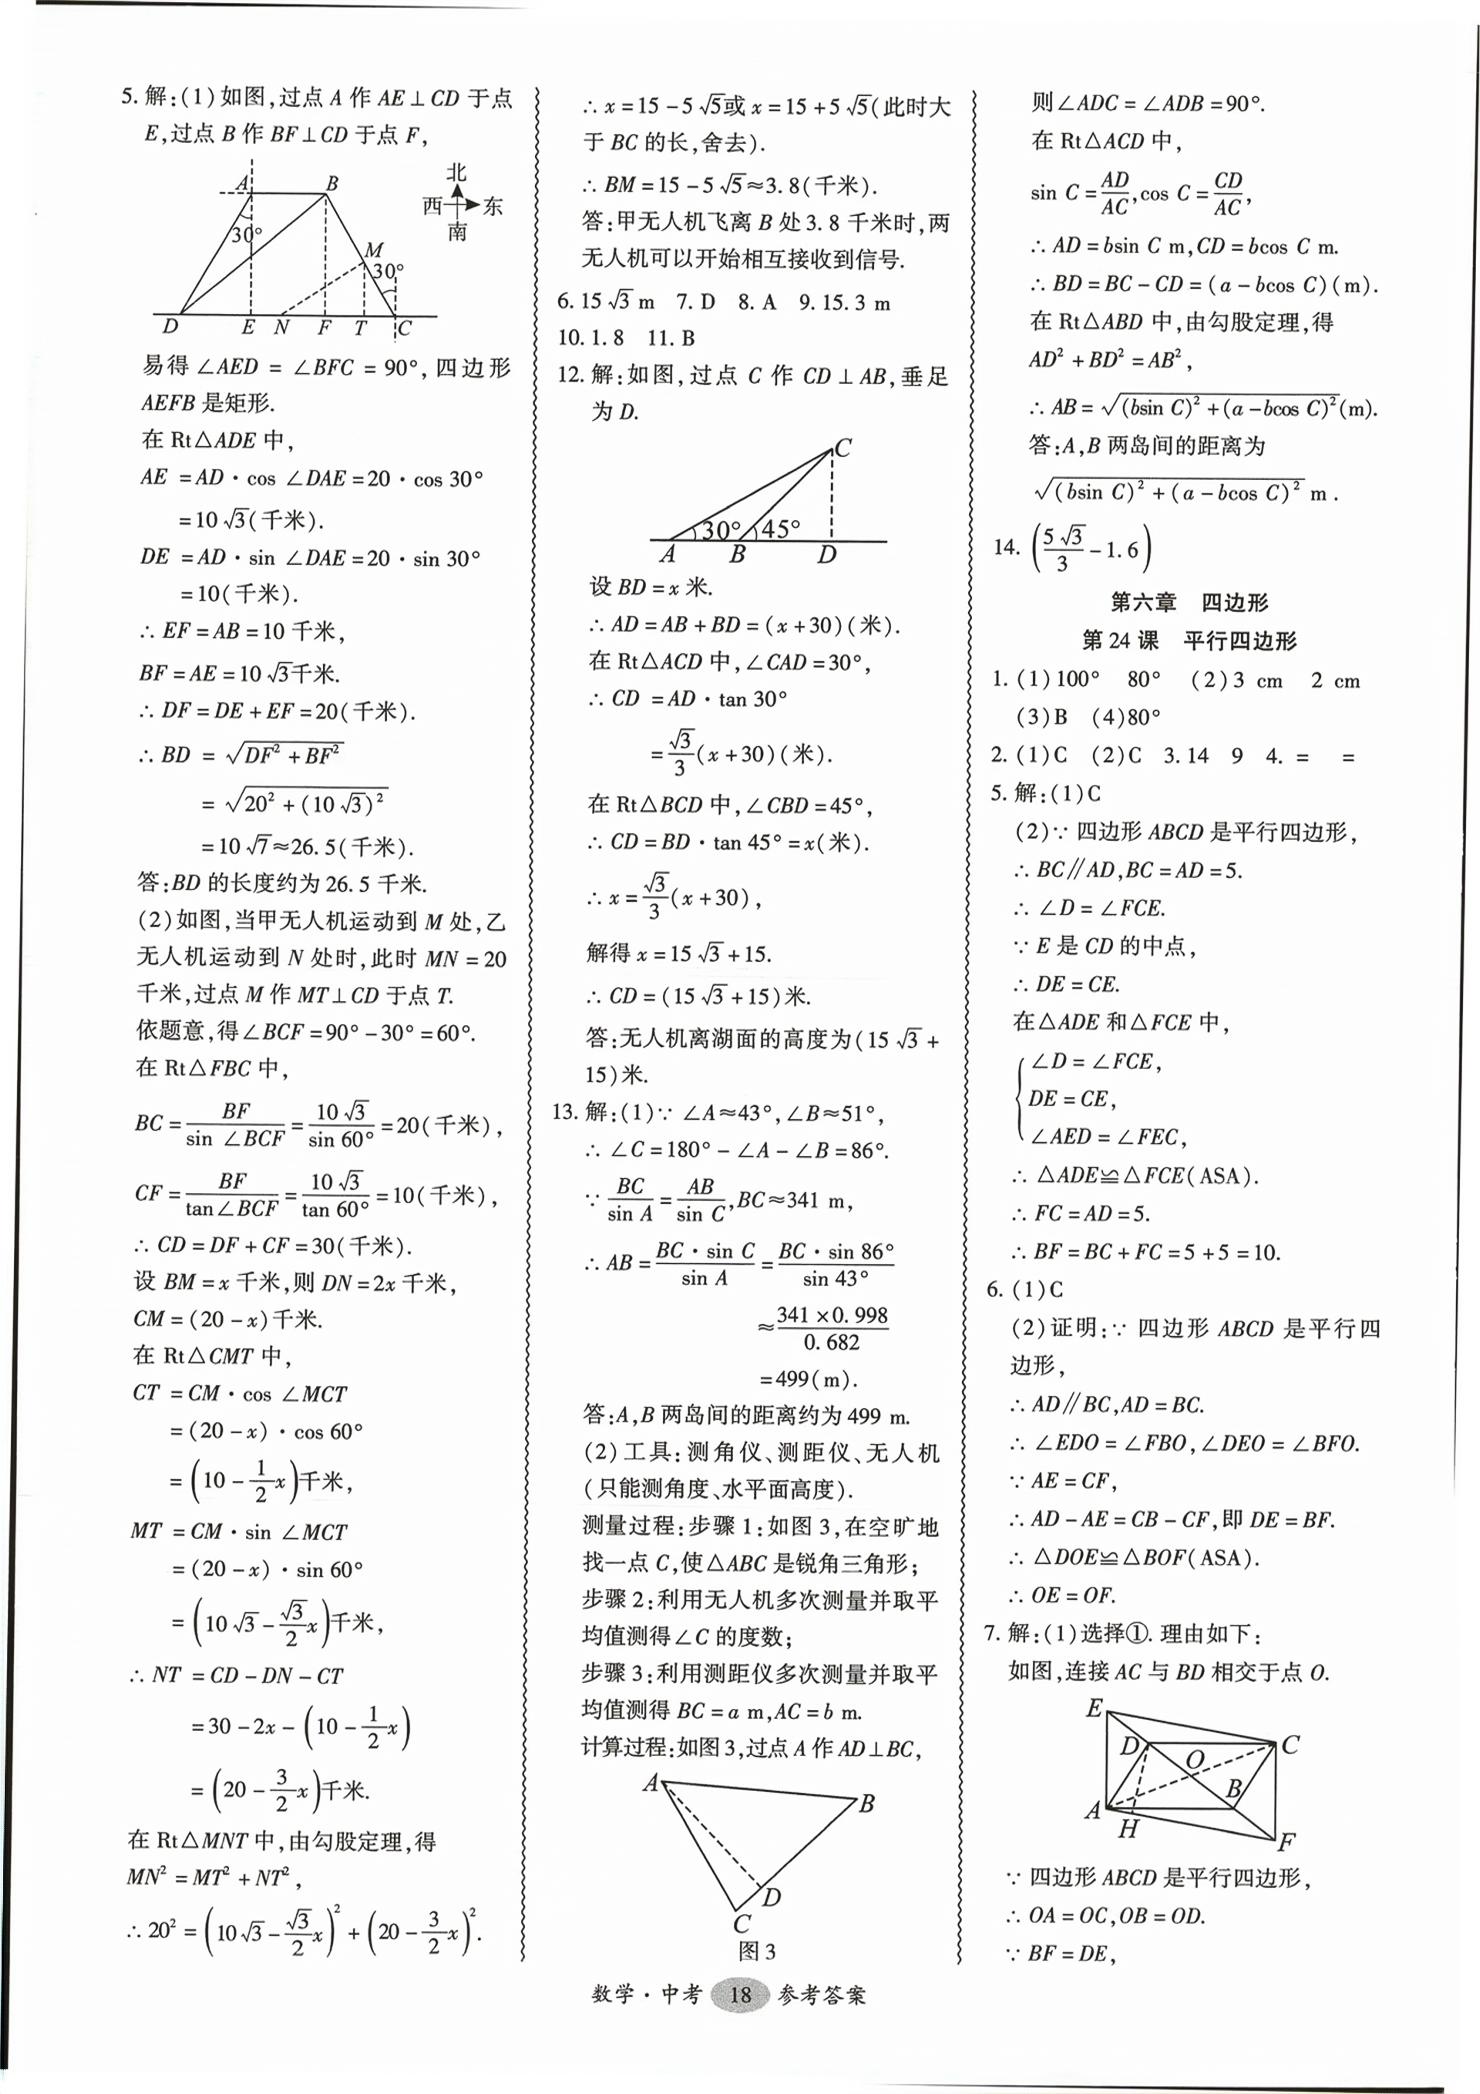 5. 解:(1)如图,过点 A 作 AE⊥CD 于点
E,过点 B 作 BF⊥CD 于点 F,
A
B
30°
M
30°
D
E
N
F
T
C
北
西
东
南
易得∠AED = ∠BFC = 90°, 四边形
AEFB 是矩形.
在 Rt△ADE 中,
AE = AD · cos ∠DAE = 20 · cos 30°
= 10√3(千米).
DE = AD · sin ∠DAE = 20 · sin 30°
= 10(千米).
∴ EF = AB = 10 千米,
BF = AE = 10√3千米.
∴ DF = DE + EF = 20(千米).
∴ BD = √(DF² + BF²)
= √(20² + (10√3)²)
= 10√7≈26.5(千米).
答:BD 的长度约为 26.5 千米.
(2)如图,当甲无人机运动到 M 处,乙
无人机运动到 N 处时,此时 MN = 20
千米,过点 M 作 MT⊥CD 于点 T.
依题意,得∠BCF = 90° - 30° = 60°.
在 Rt△FBC 中,
BC = BF/sin ∠BCF = 10√3/sin 60° = 20(千米),
CF = BF/tan∠BCF = 10√3/tan 60° = 10(千米),
∴ CD = DF + CF = 30(千米).
设 BM = x 千米,则 DN = 2x 千米,
CM = (20 - x)千米.
在 Rt△CMT 中,
CT = CM · cos ∠MCT
= (20 - x) · cos 60°
= (10 - 1/2 x)千米,
MT = CM · sin ∠MCT
= (20 - x) · sin 60°
= (10√3 - √3/2 x)千米,
∴ NT = CD - DN - CT
= 30 - 2x - (10 - 1/2 x)
= (20 - 3/2 x)千米.
在 Rt△MNT 中,由勾股定理,得
MN² = MT² + NT²,
∴ 20² = (10√3 - √3/2 x)² + (20 - 3/2 x)².
∴ x = 15 - 5√5或 x = 15 + 5√5(此时大
于 BC 的长,舍去).
∴ BM = 15 - 5√5≈3.8(千米).
答:甲无人机飞离 B 处 3.8 千米时,两
无人机可以开始相互接收到信号.
6. 15√3 m 7. D 8. A 9. 15.3 m
10. 1.8 11. B
12. 解:如图,过点 C 作 CD⊥AB,垂足
为 D.
C
30°
45°
A
B
D
设 BD = x 米.
∴ AD = AB + BD = (x + 30)(米).
在 Rt△ACD 中,∠CAD = 30°,
∴ CD = AD · tan 30°
= √3/3(x + 30)(米).
在 Rt△BCD 中,∠CBD = 45°,
∴ CD = BD · tan 45° = x(米).
∴ x = √3/3(x + 30),
解得 x = 15√3 + 15.
∴ CD = (15√3 + 15)米.
答:无人机离湖面的高度为(15√3 +
15)米.
13. 解:(1)∵ ∠A≈43°,∠B≈51°,
∴ ∠C = 180° - ∠A - ∠B = 86°.
∵ BC/sin A = AB/sin C, BC≈341 m,
∴ AB = BC · sin C/sin A = BC · sin 86°/sin 43°
≈ 341 × 0.998/0.682
= 499(m).
答:A,B 两岛间的距离约为 499 m.
(2)工具:测角仪、测距仪、无人机
(只能测角度、水平面高度).
测量过程:步骤 1:如图 3,在空旷地
找一点 C,使△ABC 是锐角三角形;
步骤 2:利用无人机多次测量并取平
均值测得∠C 的度数;
步骤 3:利用测距仪多次测量并取平
均值测得 BC = a m,AC = b m.
计算过程:如图 3,过点 A 作 AD⊥BC,
A
B
D
C
图 3
则∠ADC = ∠ADB = 90°.
在 Rt△ACD 中,
sin C = AD/AC, cos C = CD/AC,
∴ AD = bsin C m,CD = bcos C m.
∴ BD = BC - CD = (a - bcos C)(m).
在 Rt△ABD 中,由勾股定理,得
AD² + BD² = AB²,
∴ AB = √((bsin C)² + (a - bcos C)²)(m).
答:A,B 两岛间的距离为
√((bsin C)² + (a - bcos C)²) m .
14. (5√3/3 - 1.6)
第六章 四边形
第 24 课 平行四边形
1. (1)100° 80° (2)3 cm 2 cm
(3)B (4)80°
2. (1)C (2)C 3. 14 9 4. = =
5. 解:(1)C
(2)∵ 四边形 ABCD 是平行四边形,
∴ BC∥AD,BC = AD = 5.
∴ ∠D = ∠FCE.
∵ E 是 CD 的中点,
∴ DE = CE.
在△ADE 和△FCE 中,
∠D = ∠FCE,
DE = CE,
∠AED = ∠FEC,
∴ △ADE≌△FCE(ASA).
∴ FC = AD = 5.
∴ BF = BC + FC = 5 + 5 = 10.
6. (1)C
(2)证明:∵ 四边形 ABCD 是平行四
边形,
∴ AD∥BC,AD = BC.
∴ ∠EDO = ∠FBO,∠DEO = ∠BFO.
∵ AE = CF,
∴ AD - AE = CB - CF,即 DE = BF.
∴ △DOE≌△BOF(ASA).
∴ OE = OF.
7. 解:(1)选择①. 理由如下:
如图,连接 AC 与 BD 相交于点 O.
E
D
C
O
B
A
H
F
∵ 四边形 ABCD 是平行四边形,
∴ OA = OC,OB = OD.
∵ BF = DE,
数学·中考 18 参考答案